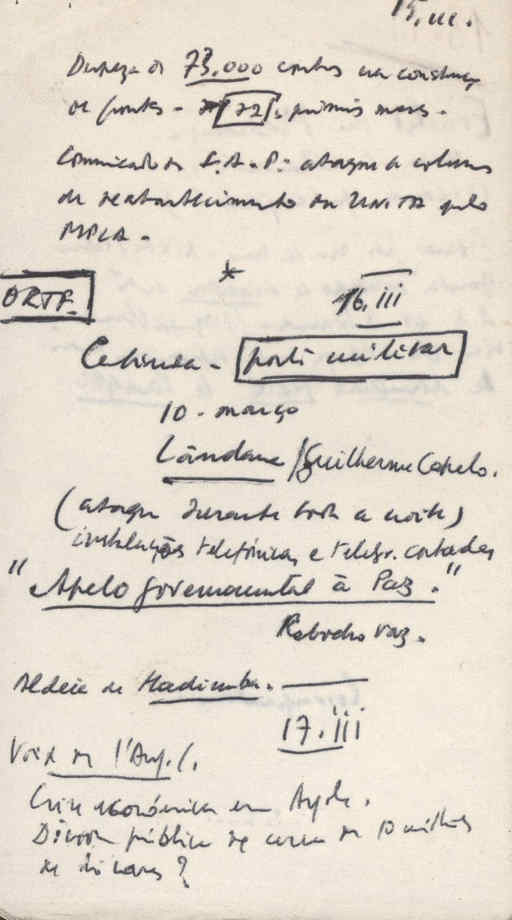 15.iii.
Despeza de 73.000 contos na construção
de pontes - 72, primeiros meses.
Comunicado da F.A.P.: ataque a colunas
de reabastecimento da UNITA pelo
MPLA -
*
ORTF.
16.iii
Cabinda - porto militar
10 - março
Lândana / Guilherme Capelo.
(ataque durante toda a noite)
instalações telefónicas e telegr. cortadas
"Apelo governamental à Paz."
Rebocho Vaz.
Aldeia de Madimba.
17.iii
Voix de l'Ang.
Crise económica em Angola.
Dívida pública de cerca de 10 milhões
de dólares?